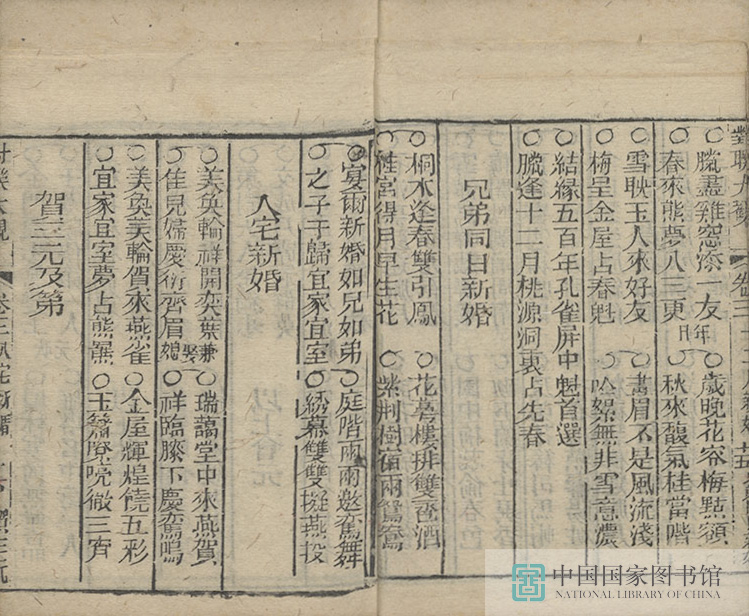 對聯大觀 卷三
○臘盡雞窓添一友年 ○歲晚花容梅點額
春來熊夢八三更 ○秋來馥氣桂當階
雪映玉人來好友 ○畫眉不是風流淺
梅呈金屋占春魁 吟絮無非雪意濃
○結緣五百年孔雀屏中魁首選
臘逢十二月桃源洞裏占先春
兄弟同日新婚
○桐木逢春雙引鳳 ○花萼樓排雙巹酒
○桂宮得月早生花 紫荊樹宿兩鴛鴦
宴爾新婚如兄如弟 ○庭階兩兩邀鸞舞
○之子于歸宜家宜室 ○綉幕雙雙擬燕投
入宅新婚
○美奐輪祥開奕葉兼娶 ○瑞藹堂中來燕賀
佳兒婦慶衍齊眉媳 祥臨膝下慶鸞鳴
○美奐美輪賀來燕雀 ○金屋輝煌饒五彩
○宜家宜室夢占熊羆 ○玉簫嘹喨徹三宵
賀三元及第
對聯大觀 卷三 入宅新婚
中国国家图书馆
NATIONAL LIBRARY OF CHINA